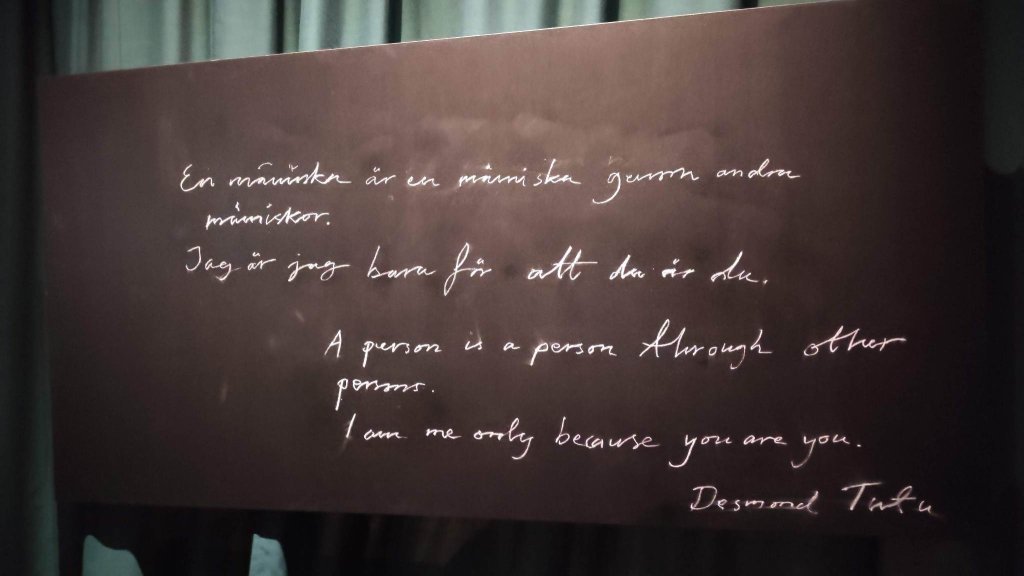 En människa är en människa genom andra
människor.
Jag är jag bara för att du är du.
A person is a person through other
persons.
I am me only because you are you.
Desmond Tutu